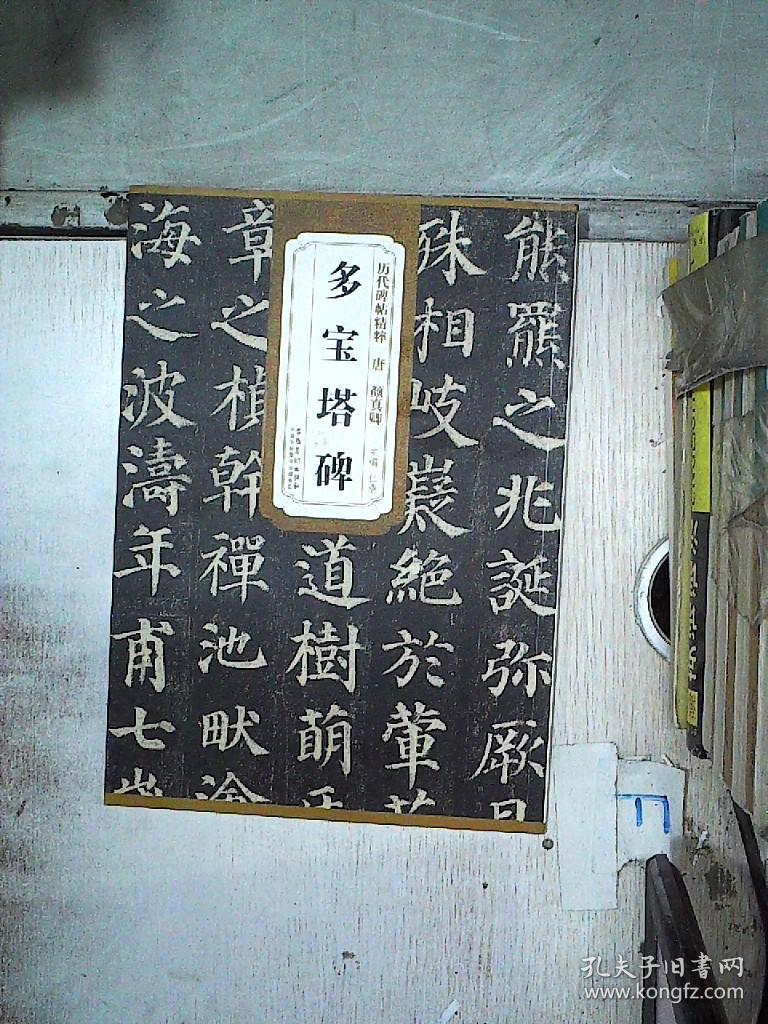 历代碑帖精粹 唐 颜真卿
多宝塔碑
熊羆之兆誕弥厥月
殊相岐嶷絶於葷
道樹萌
章之楨幹禪池畎澮
海之波濤年甫七歲
孔夫子旧书网
www.kongfz.com